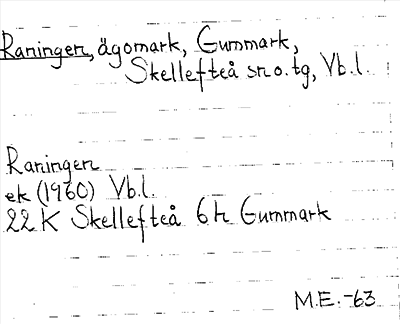 Raningen, ägomark, Gummark,
Skellefteå sn o. tg, Vb.l.
Raningen
ek (1960) Vb.l.
22 K Skellefteå 6h Gummark
M.E. -63